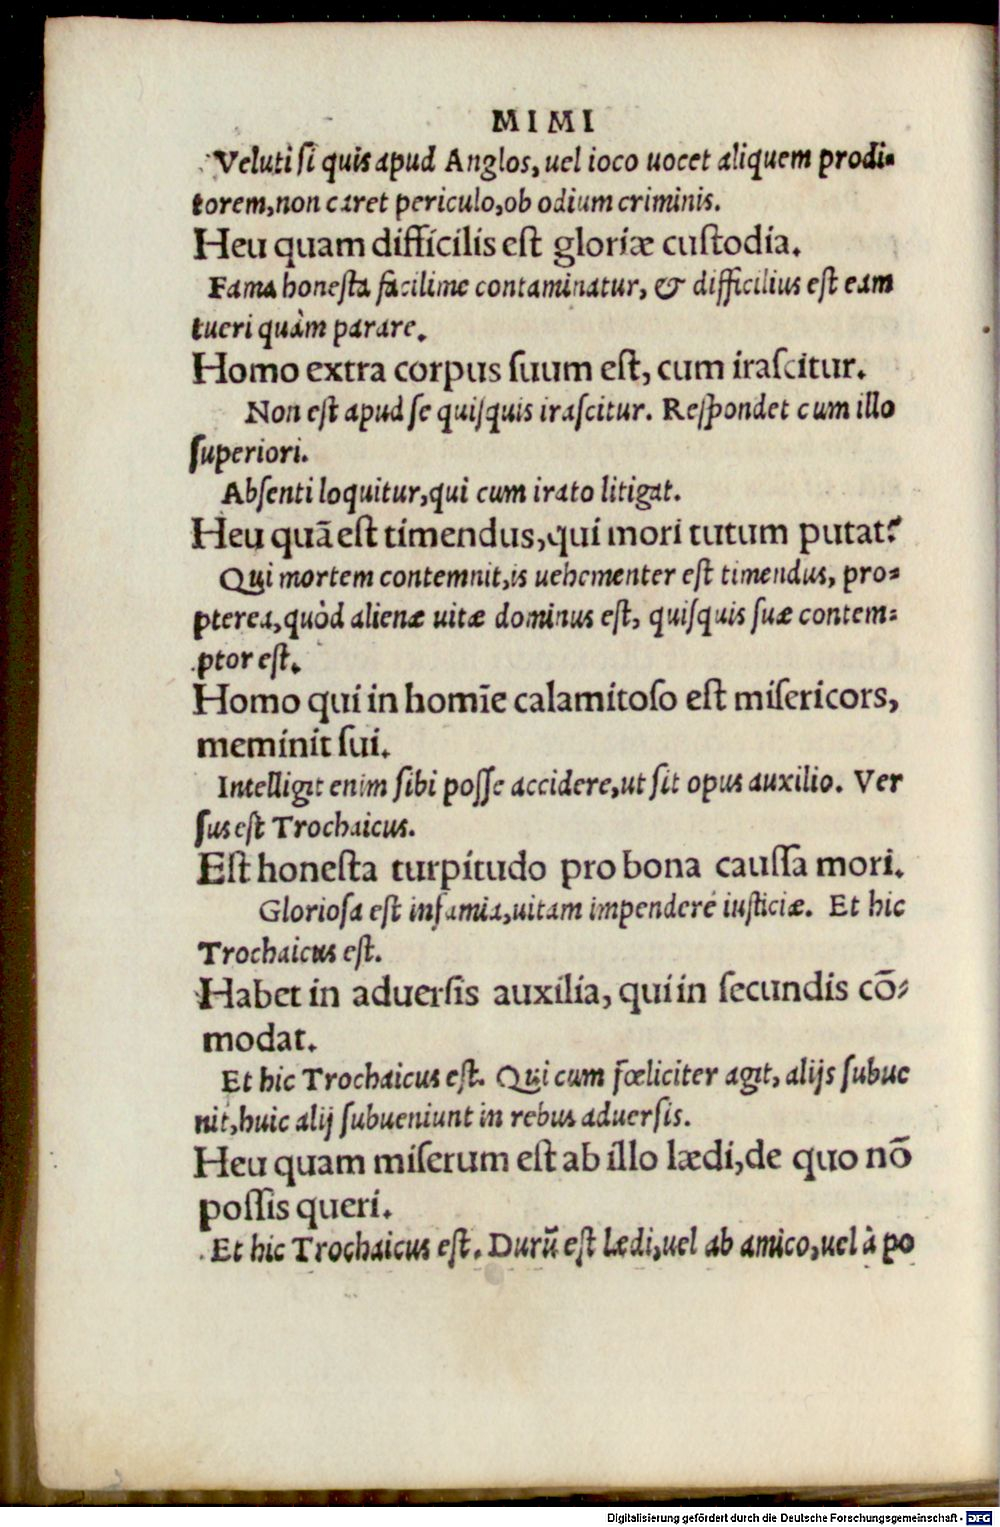 MIMI
Veluti si quis apud Anglos, uel ioco uocet aliquem prodi-
torem, non caret periculo, ob odium criminis.
Heu quam difficilis est gloriæ custodia.
Fama honesta facilime contaminatur, & difficilius est eam
tueri quàm parare.
Homo extra corpus suum est, cum irascitur.
Non est apud se quisquis irascitur. Respondet cum illo
superiori.
Absenti loquitur, qui cum irato litigat.
Heu quā est timendus, qui mori tutum putat?
Qui mortem contemnit, is uehementer est timendus, pro-
pterea, quòd alienæ uitæ dominus est, quisquis suæ contem-
ptor est.
Homo qui in homīe calamitoso est misericors,
meminit sui.
Intelligit enim sibi posse accidere, ut sit opus auxilio. Ver
sus est Trochaicus.
Est honesta turpitudo pro bona caussa mori.
Gloriosa est infamia, uitam impendere iusticiæ. Et hic
Trochaicus est.
Habet in aduersis auxilia, qui in secundis cō-
modat.
Et hic Trochaicus est. Qui cum fœliciter agit, alijs subue
nit, huic alij subueniunt in rebus aduersis.
Heu quam miserum est ab illo lædi, de quo nō
possis queri.
Et hic Trochaicus est. Durū est lædi, uel ab amico, uel à po
Digitalisierung gefördert durch die Deutsche Forschungsgemeinschaft - DFG